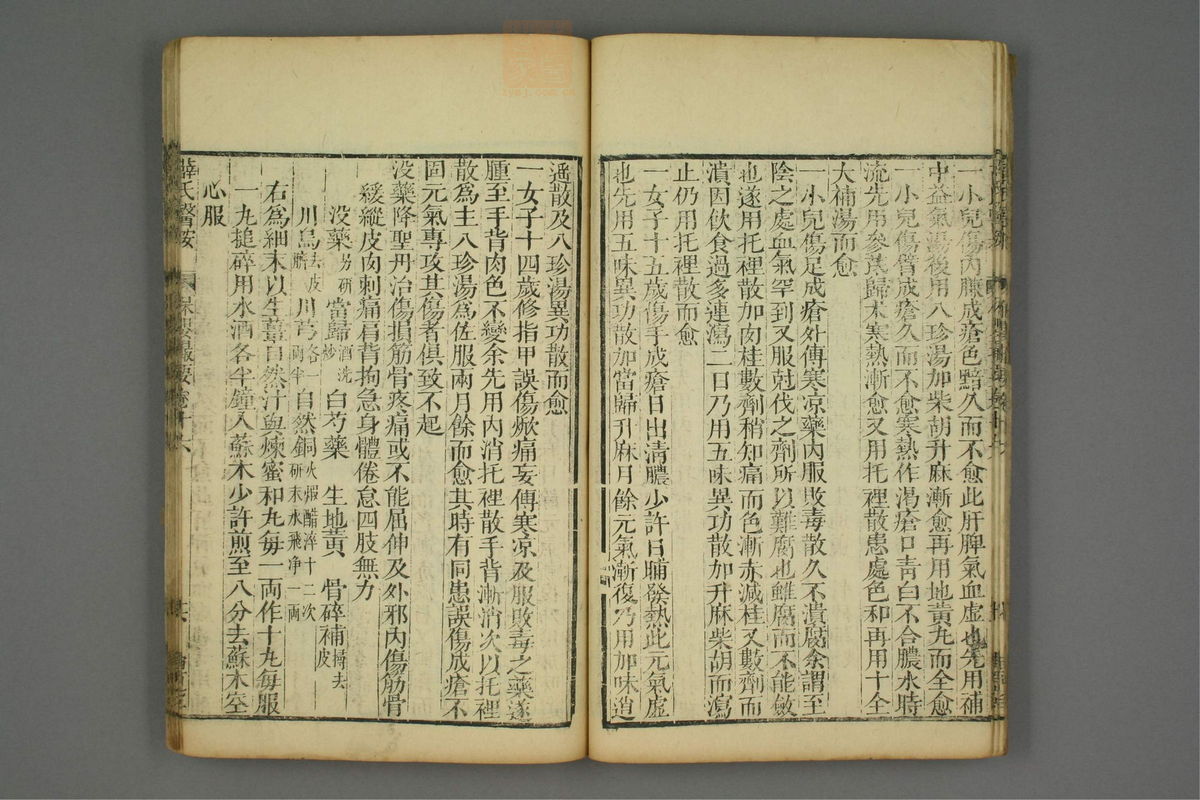 一小兒傷內臁成瘡色黯久而不愈此肝脾氣血虛也先用補
中益氣湯後用八珍湯加柴胡升麻漸愈再用地黃丸而全愈
一小兒傷臂成瘡久而不愈寒熱作渴瘡口青白不合膿水時
流先用參芪歸朮寒熱漸愈又用托裡散患處色和再用十全
大補湯而愈
一小兒傷足成瘡外傅寒凉藥內服敗毒散久不潰腐余謂至
陰之處血氣罕到又服尅伐之劑所以難腐也雖腐而不能斂
也遂用托裡散加肉桂數劑稍知痛而色漸赤減桂又數劑而
潰因飲食過多連瀉二日乃用五味異功散加升麻柴胡而瀉
止仍用托裡散而愈
一女子十五歲傷手成瘡日出清膿少許日晡發熱此元氣虛
也先用五味異功散加當歸升麻月餘元氣漸復乃用加味逍
遙散及八珍湯異功散而愈
一女子十四歲修指甲誤傷焮痛妄傅寒凉及服敗毒之藥遂
腫至手背肉色不變余先用內消托裡散手背漸消次以托裡
散為主八珍湯為佐服兩月餘而愈其時有同患誤傷成瘡不
固元氣專攻其傷者俱致不起
沒藥降聖丹治傷損筋骨疼痛或不能屈伸及外邪內傷筋骨
緩縱皮肉刺痛肩背拘急身體倦怠四肢無力
沒藥另研 當歸酒洗炒 白芍藥 生地黃 骨碎補撏去皮
川烏去皮臍 川芎各一兩半 自然銅火煆醋淬十二次研末水飛净一兩
右為細末以生薑自然汁與煉蜜和丸每一兩作十丸每服
一丸搥碎用水酒各半鍾入蘇木少許煎至八分去蘇木空
心服
薛氏醫按 保嬰撮要卷十六